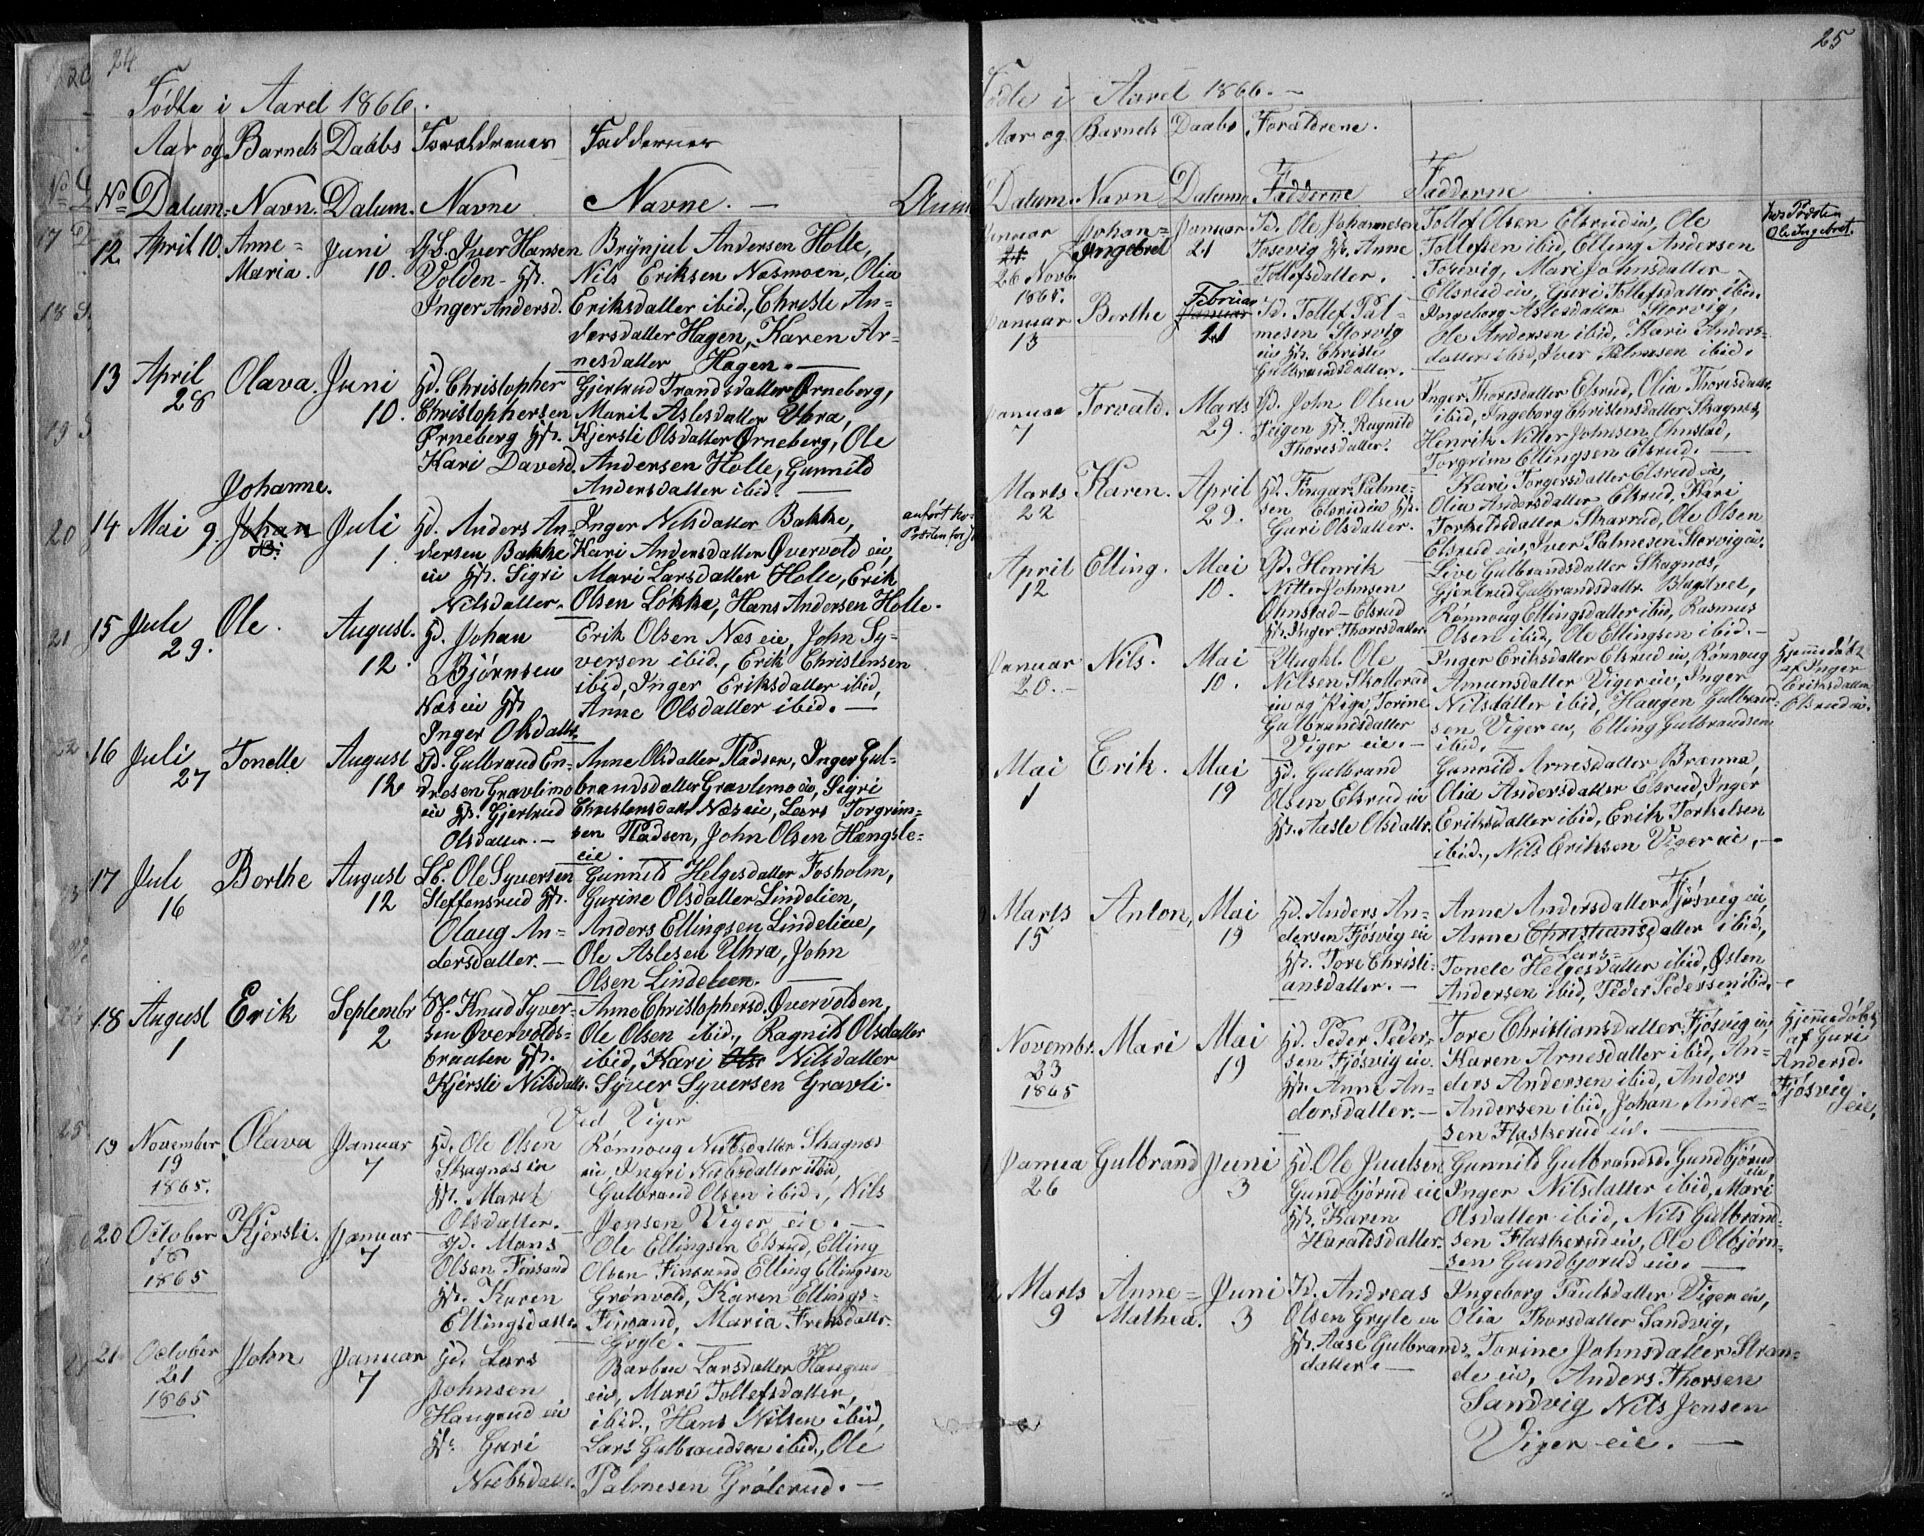 24
Fødte i Aaret 1866.
Aar og Barnets Daabs Forældrenes Faddernes
No Datum. Navn. Datum. Navne Navne. —
12 April 10. Anne= Maria. Juni 10.
Gd. Iver Hansen
Volden - Hst.
Inger Andersd.
Brynjul Andersen Holle,
Nils Eriksen Næsmoen, Olia
Eriksdatter ibid., Christe An-
dersdatter Hagen, Karen Ar-
nesdatter Hagen. —
13 April 28 Olava. Juni 10.
Hd. Christopher
Christophersen
Ørneberg Hst.
Kari Davidsd.
Gjertrud Trondsdatter Ørneberg,
Marit Aslesdatter Uhra,
Kjersti Olsdatter Ørneberg, Ole
Andersen Holle, Gunnild
Andersdatter ibid. —
14 Mai 9. Johanne. Johan Juli 1.
Hd. Anders An-
dersen Bakke
eie Hst. Sigri
Nilsdatter.
Inger Nilsdatter Bakke,
Kari Andersdatter Øvervold eie,
Mari Larsdatter Holle, Erik
Olsen Løkka, Hans Andersen Holle.
15 Juli 29. Ole. August. 12.
Hd. Johan
Bjørnsen
Næs eie Hst.
Inger Olsdatt.
Erik Olsen Næs eie, John Sy-
versen ibid., Erik Christensen
ibid, Inger Eriksdatter ibid,
Anne Olsdatter ibid. —
16 Juli 27 Tonette August 12
Hd. Gulbrand En-
dresen Gravlimo
eie Hst. Gjertrud
Olsdatter. —
Anne Olsdatter Pladsen, Inger Gul-
brandsdatter Gravlimo eie, Sigri
Christensdatt Næs eie, Lars Torgrim-
sen Pladsen, John Olsen Hængsle-
eie. —
17 Juli 16 Berthe August 12
Sb. Ole Syversen
Steffensrud Hst.
Olaug An-
dersdatter. —
Gunnild Helgesdatter Fosholm,
Gurine Olsdatter Lindelien,
Anders Ellingsen Lindelieie,
Ole Aslesen Uhra, John
Olsen Lindelien. —
18 August 1 Erik Septembr 2
Hf. Knud Syver-
sen Øvervolds-
braaten Hst.
Kjersti Nilsdatt.
Anne Christophersd. Øvervolden,
Ole Olsen ibid., Ragnild Olsdatter
ibid, Kari Nilsdatter
Syver Syversen Gravli.
Ved Viger
19 November 19 1865. Olava Januar 7
Hd. Ole Olsen
Skagnæs eie
Hst. Marit
Olsdatter. —
Rønnoug Nubsdatter Skagnæs
eie Ingri Nubsdatter ibid,
Gulbrand Olsen ibid., Nils
Jensen Viger eie. —
20 October 18 1865 Kjersti. Januar 7
Hd. Mons
Olsen Finsand
Hst. Karen
Ellingsdatter
Ole Ellingsen Elsrud, Elling
Olsen Finsand Elling Ellingsen
Grønvold, Karen Ellings-
Finsand, Maria
Gryte. —
21 October 21 1865 John Januar 7
Hd. Lars
Johnsen
Haugerud eie
Hst. Guri
Nubsdatter.
Barbru Larsdatter Haugerud
eie, Mari Tollefsdatter,
ibid., Hans Nilsen ibid,
Lars Gulbrandsen ibid., Ole
Palmesen Grølerud. —
25
Fødte i Aaret 1866. —
Aar og Barnets Daabs Forældrene.
Datum. Navn Datum Fadderne Fadderne
Januar 21 26 Novb 1865. Johan= Ingebret Januar 21
Hd. Ole Johannesen
Fosevig Hst. Anne
Tollefsdatter.
Tollef Olsen Elsrud eie, Ole
Tollefsen ibid, Elling Andersen
Fosevig, Mari Johnsdatter
Ellsrud eie, Guri Tollefsdatter ibid.
hos Præsten
Ole Ingebret.
Januar 13 Berthe Februar Januar 21
Hd. Tollef Pal-
mesen Storvig
eie Hst. Christi
Gulbrandsdatter.
Ingeborg Aslesdatter Storvig,
Ole Andersen ibid, Kari Anders-
datter ibid, Iver Palmesen ibid.
Januar 7 Torvald. Marts 29.
Hd. John Olsen
Teigen Hst. Ragnild
Thoresdatter.
Inger Thoresdatter Elsrud, Olia Thoresdatter
ibid, Ingeborg Christensdatter Skagnæs,
Henrik Nitter Johnsen Ohnstad,
Torgrim Ellingsen Elsrud. —
Marts 22 Karen. April 29.
Hd. Fingar Palme-
sen Elsrud eie Hst.
Guri Olsdatter.
Kari Torgersdatter Elsrud eie,
Olia Andersdatter Elsrud, Kari
Torkelsdatter Skarrud, Ole Olsen
Elsrud eie, Iver Palmesen Storvig eie.
April 12 Elling. Mai 10.
Hd. Henrik
Nitter Johnsen
Ohnstad - Elsrud
Hst. Inger Thoresdatter
Live Gulbrandsdatter Skagnæs,
Gjertrud Gulbrandsdatter
Rønnoug Ellingsdatter ibid, Rasmus
Olsen ibid, Ole Ellingsen ibid. —
Januar 20. — Nils. Mai 10.
Ungkl. Ole
Nilsen Skollerud
eie og Pige Torine
Gulbrandsdatter
Viger eie. —
Inger Eriksdatter Elsrud eie, Rønnoug
Amunsdatter Viger eie, Inger
Nilsdatter ibid, Haagen Gulbrand-
sen Viger eie, Elling Gulbrandsen
ibid. —
Hjemmedøbt
af Inger
Eriksdatter
Elsrud eie.
Mai 1 Erik. Mai 19
Hd. Gulbrand
Olsen Elsrud eie
Hst. Aasle Olsdatt.
Gunnild Arnesdatter Brænna,
Olia Andersdatter Elsrud, Inger
Eriksdatter ibid, Erik Torkelsen
ibid., Nils Eriksen Viger eie. —
Marts 15 Anton, Mai 19
Hd. Anders An-
dersen Fjøsvig eie
Hst. Tore Christi-
ansdatter. —
Anne Andersdatter Fjøsvig eie,
Anne Christiansdatter ibid,
Lars-
Tonele Helgesdatter ibid, Østen
Andersen ibid, Peder Pedersen ibid. —
Novembr. 23 1865 Mari Mai 19
Hd. Peder Peder-
sen Fjøsvig eie.
Hst. Anne An-
dersdatter. —
Tore Christiansdatter Fjøsvig eie,
Karen Arnesdatter ibid, An-
ders Andersen ibid, Anders
Andersen ibid, Johan Ander-
sen Flaskerud eie. —
Hjemmedøbt
af Guri
Andersd.
Fjøsvig
eie.
Janua 26 Gulbrand Juni 3
Hd. Ole Juulsen
Gundbjørud eie
Hst. Karen
Haraldsdatter.
Gunnild Gulbrandsd. Gundbjørud
eie
Inger Nilsdatter ibid, Mari
Olsdatter ibid, Nils Gulbrand-
sen Flaskerud eie, Ole Olbjørn-
sen Gundbjørud eie. —
Marts 9 Anne= Mathea. Juni 3
Hd. Andreas
Olsen Gryte eie
Hst. Aase Gulbrands
datter. —
Ingeborg Paulsdatter Viger eie,
Olia Thorsdatter Sandvig,
Torine Johnsdatter Stran-
de eie, Anders Thorsen
Sandvig Nils Jensen
Viger eie. —